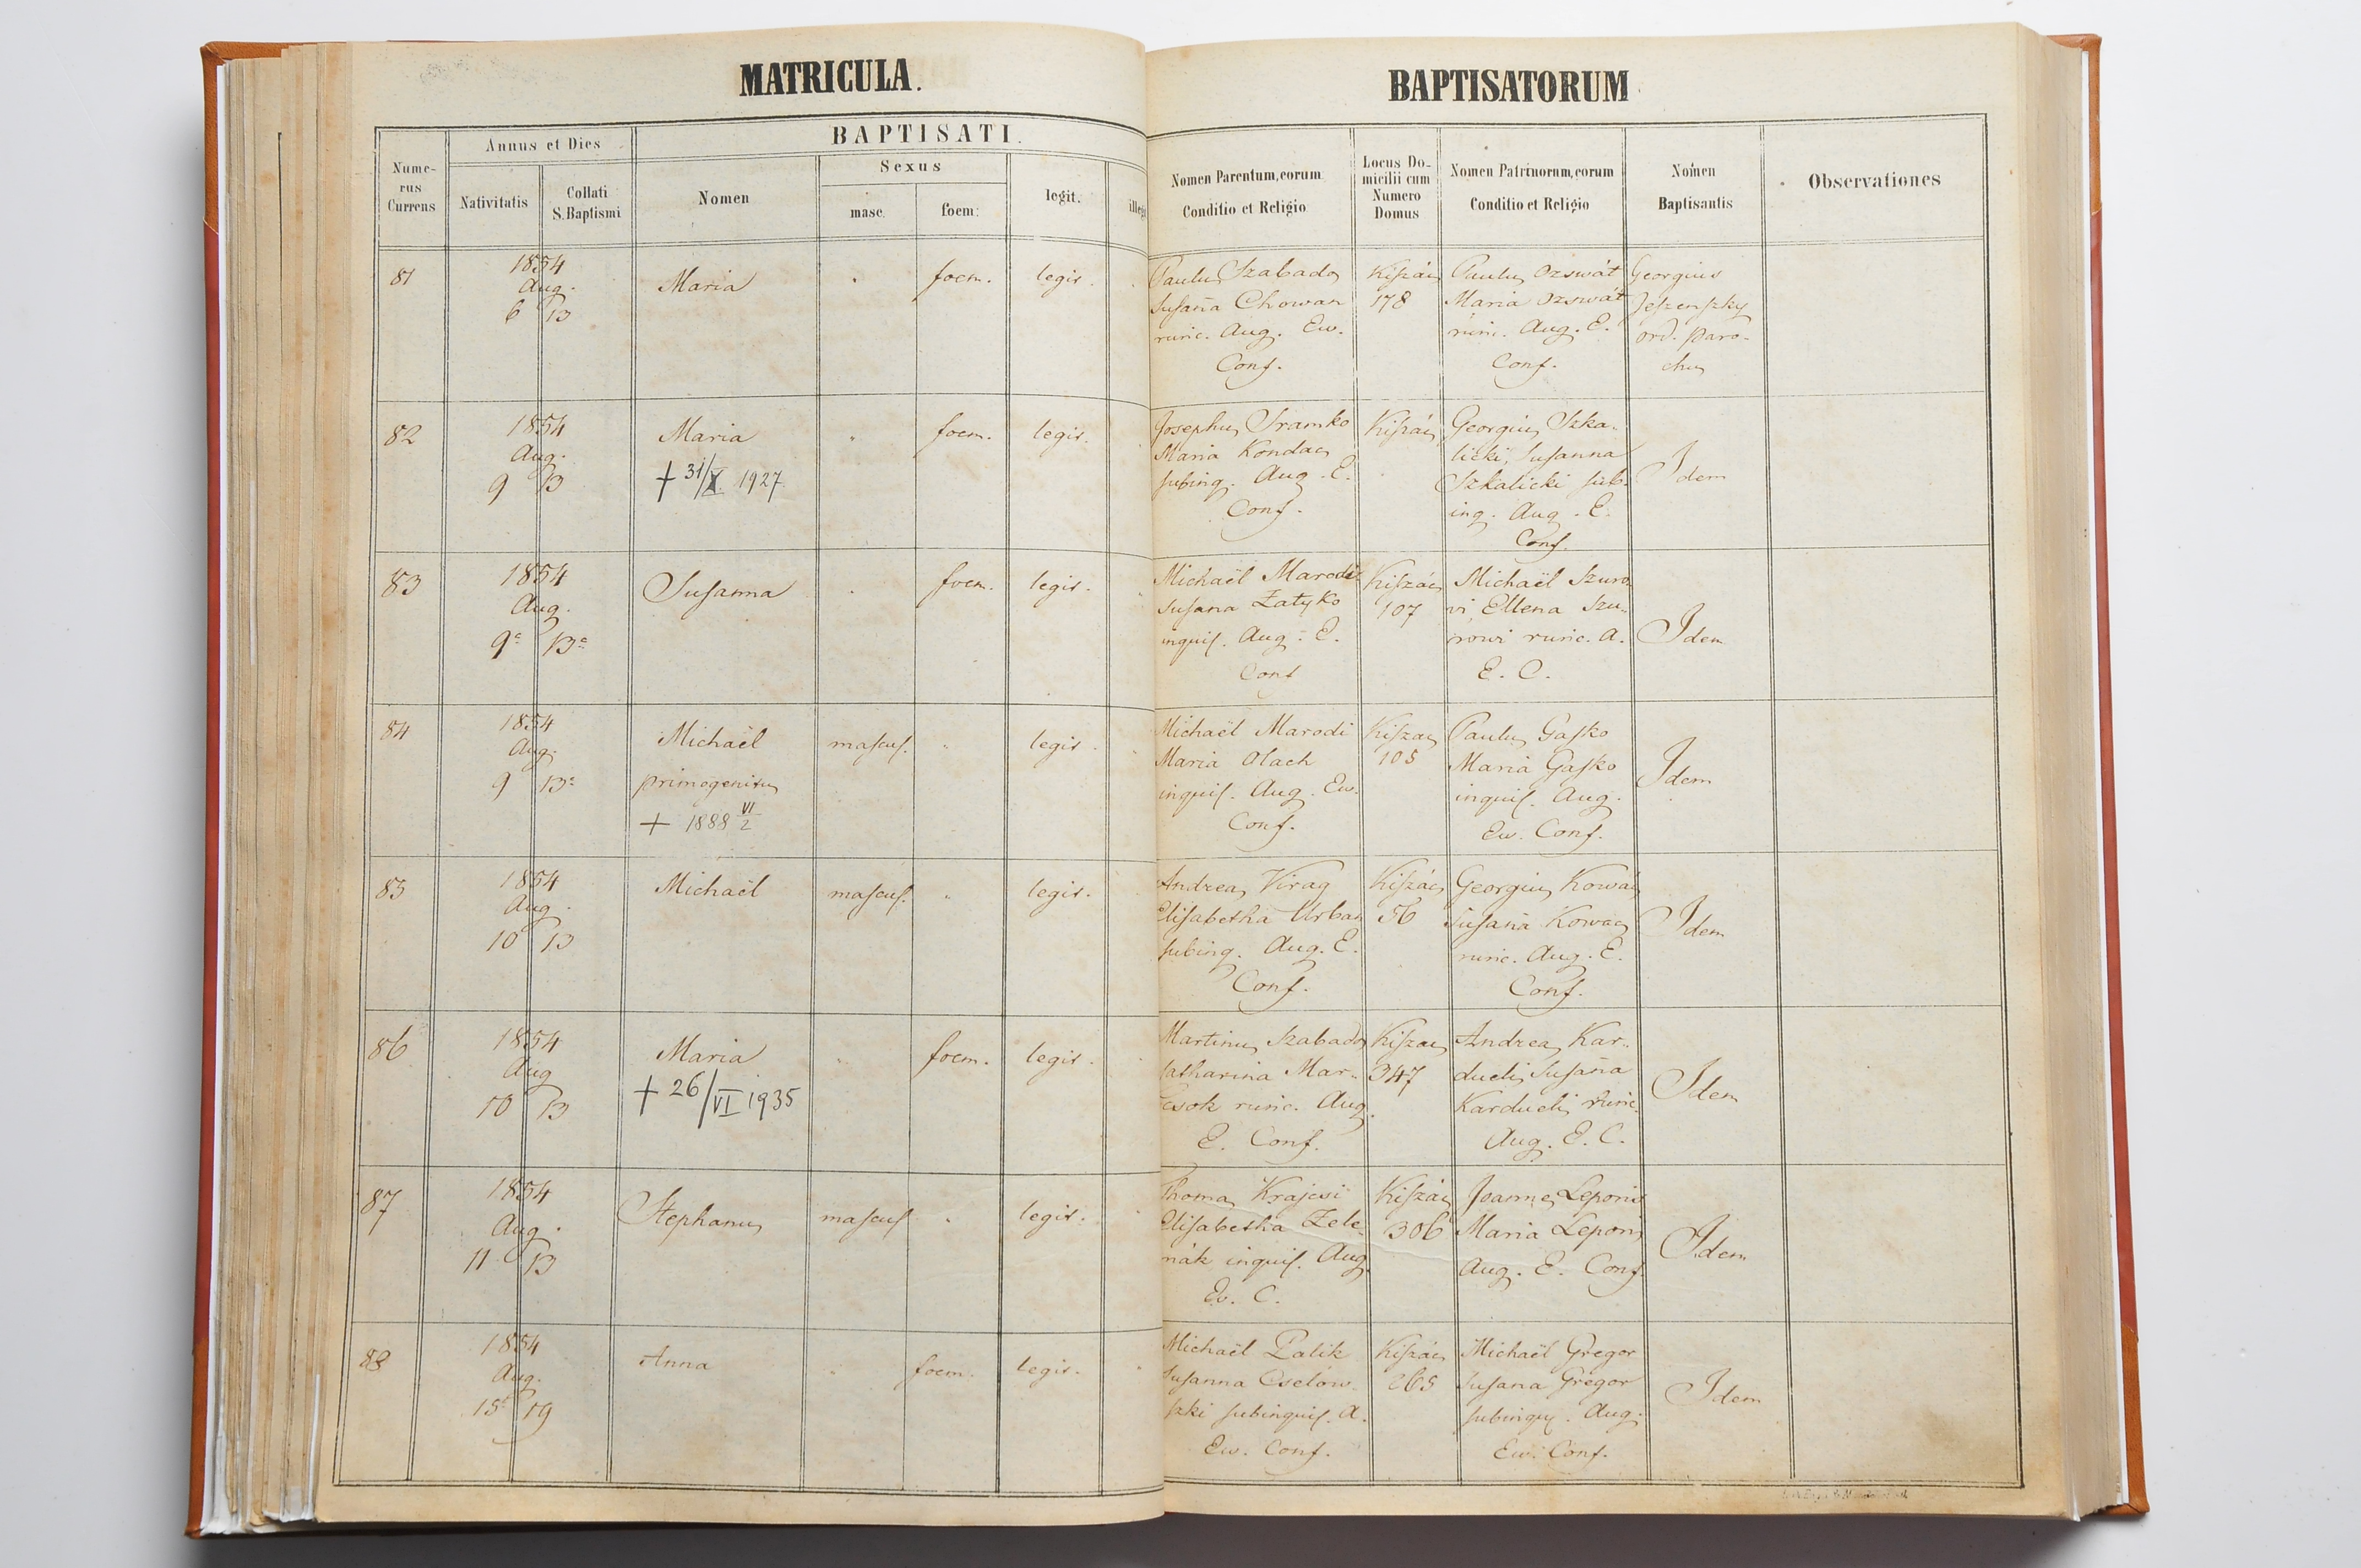 MATRICULA.
BAPTISATORUM
Numerus Currens
Annus et Dies
Nativitatis
Collati S. Baptismi
BAPTISATI.
Nomen
Sexus
masc.
foem:
legit.
illegi
Nomen Parentum, eorum
Conditio et Religio
Locus Do-
micilii cum
Numero
Domus
Nomen Patrinorum, eorum
Conditio et Religio
Nomen
Baptisantis
Observationes
81
1854
Aug.
6 13
Maria
foem.
legit.
Paulus Szabados
Susaña Chowan
ruric. Aug. Ew.
Conf.
Kiszács
178
Paulus Ozswát
Maria Ozswát
ruric. Aug. E.
Conf.
Georgius
Jeszenszky
ord. paro-
chus
82
1854
Aug.
9 13
Maria
+ 31/X 1927
foem.
legit.
Josephus Sramko
Maria Kondacs
subinq. Aug. E.
Conf.
Kiszács
Georgius Szka-
licki, Susanna
Szkalicki sub-
inq. Aug. E.
Conf.
Idem
83
1854
Aug.
9a 13a
Susanna
foem.
legit.
Michaël Marodi
Susana Zatyko
inquil. Aug. E.
Conf
Kiszács
107
Michaël Szuro-
vi, Ellena Szu-
rowi ruric. A.
E. C.
Idem
84
1854
Aug.
9 13a
Michaël
primogenitus
+ 1888 VI/2
mascul.
legit.
Michaël Marodi
Maria Olach
inquil. Aug. Ew.
Conf.
Kiszacs
105
Paulus Gasko
Maria Gasko
inquil. Aug.
Ew. Conf.
Idem
85
1854
Aug.
10 13
Michaël
mascul.
legit.
Andreas Virag
Elisabetha Urban
subinq. Aug. E.
Conf.
Kiszács
56
Georgius Kowács
Susaña Kowacs
ruric. Aug. E.
Conf.
Idem
86
1854
Aug
10 13
Maria
+ 26/VI 1935
foem.
legit.
Martinus Szabados
Catharina Mar-
csok ruric. Aug.
E. Conf.
Kiszacs
347
Andreas Kar-
duelis Susaña
Karduelis ruric.
Aug. E. C.
Idem
87
1854
Aug.
11 13
Stephanus
mascul.
legit.
Thomas Krajcsi
Elisabetha Zele-
nák inquil. Aug.
Ev. C.
Kiszács
306
Joannes Leporis
Maria Leporis
Aug. E. Conf.
Idem
88
1854
Aug.
15 19
Anna
foem.
legit.
Michaël Palik
Susanna Cselow-
szki subinquil. A.
Ew. Conf.
Kiszács
265
Michaël Gregor
Susana Gregor
subinquil. Aug.
Ew. Conf.
Idem